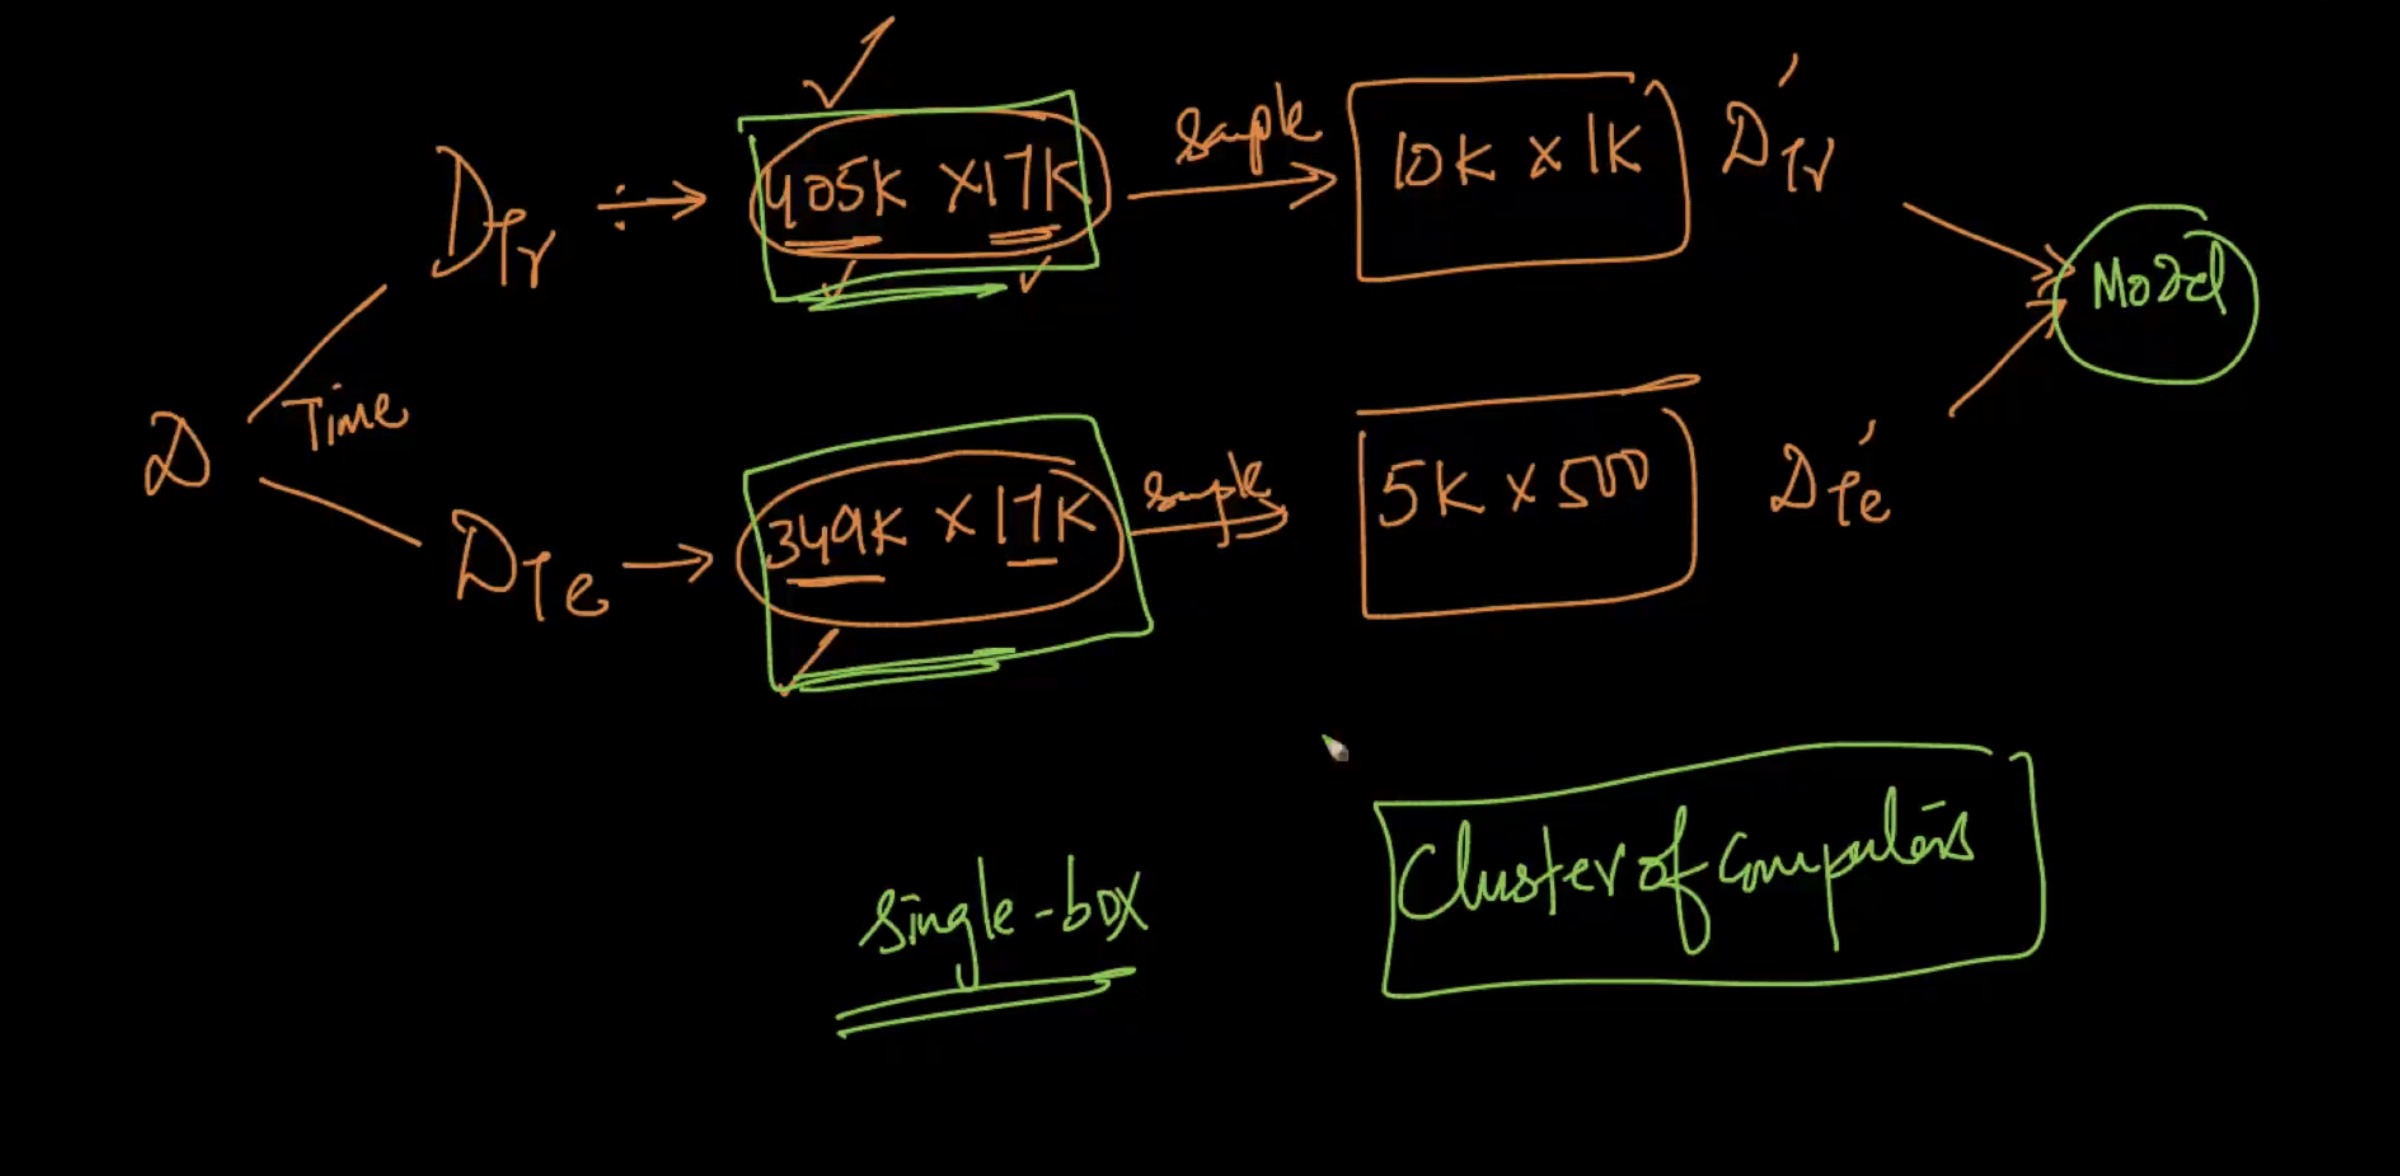 D_Tr ÷→ 405K × 17K sample → 10K × 1K D'_Tr
Model
Time
D
D_Te → 349K × 17K sample → 5K × 500 D'_Te
single-box
Cluster of Computers